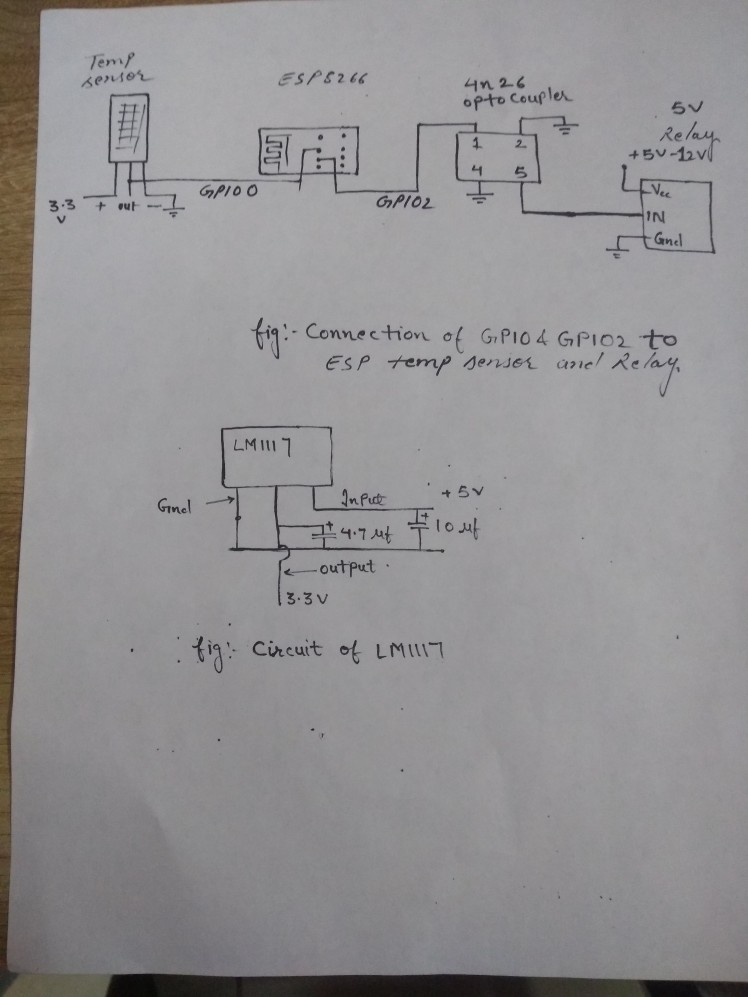 Temp
sensor
ESP8266
4n26
optocoupler
5V
Relay
+5V-12V
1 2
4 5
Vcc
IN
Gnd
3.3
V
+ out -
GPIO0
GPIO2
fig:- Connection of GPIO & GPIO2 to
ESP temp sensor and Relay.
LM1117
Gnd
Input
+5V
+ 4.7 uf
+ 10 uf
output
3.3V
fig:- Circuit of LM1117